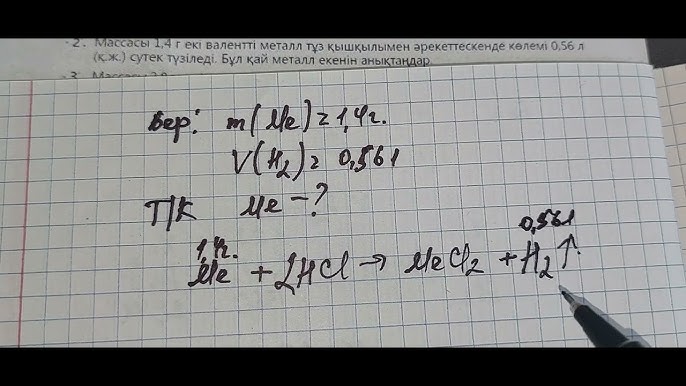 2. Массасы 1,4 г екі валентті металл тұз қышқылымен әрекеттескенде көлемі 0,56 л
(қ.ж.) сутек түзіледі. Бұл қай металл екенін анықтаңдар.
3. Массасы
Бер: m(Me) = 1,4 г.
V(H₂) = 0,56 л
Т/К Me - ?
1,4г. 0,56 л
Me + 2HCl → MeCl₂ + H₂↑